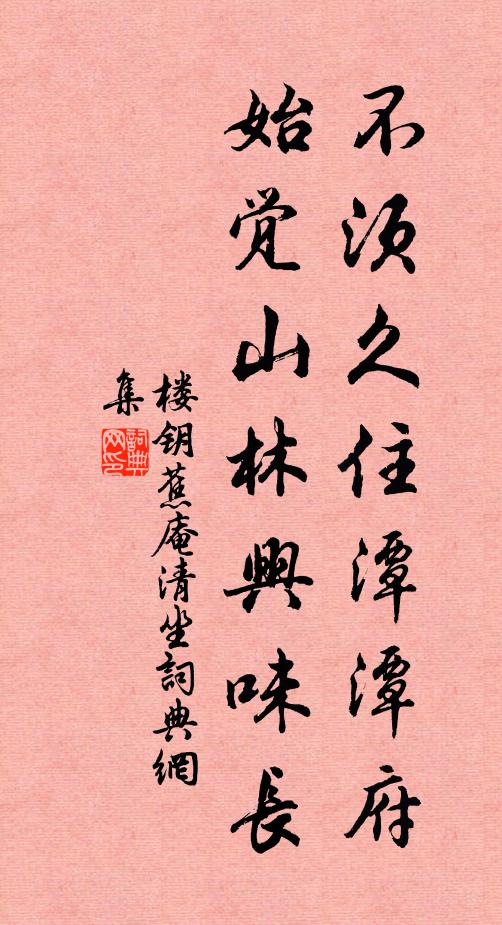 不须久住潭潭府
始觉山林興味長
楼钥蕉庵清坐詞典網
集
詞典网印